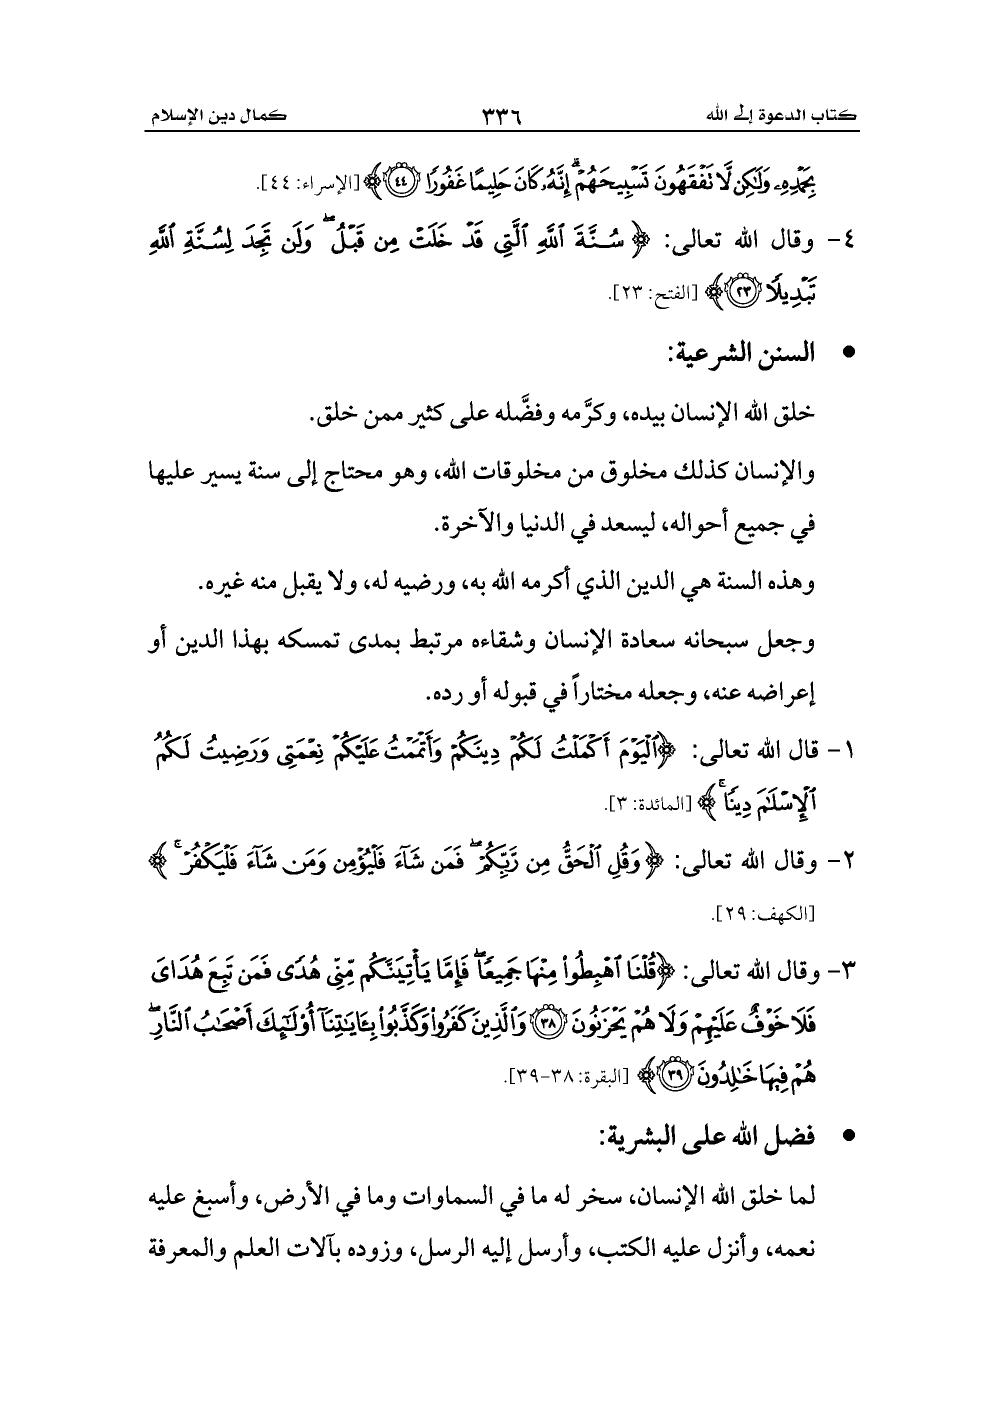 كتاب الدعوة إلى الله ٣٣٦ كمال دين الإسلام
بِحَمْدِهِۦ وَلَٰكِن لَّا تَفْقَهُونَ تَسْبِيحَهُمْ ۗ إِنَّهُۥ كَانَ حَلِيمًا غَفُورًا ٤٤﴾ [الإسراء: ٤٤].
٤- وقال الله تعالى: ﴿سُنَّةَ ٱللَّهِ ٱلَّتِي قَدْ خَلَتْ مِن قَبْلُ ۖ وَلَن تَجِدَ لِسُنَّةِ ٱللَّهِ
تَبْدِيلًا ٢٣﴾ [الفتح: ٢٣].
• السنن الشرعية:
خلق الله الإنسان بيده، وكرَّمه وفضَّله على كثير ممن خلق.
والإنسان كذلك مخلوق من مخلوقات الله، وهو محتاج إلى سنة يسير عليها
في جميع أحواله، ليسعد في الدنيا والآخرة.
وهذه السنة هي الدين الذي أكرمه الله به، ورضيه له، ولا يقبل منه غيره.
وجعل سبحانه سعادة الإنسان وشقاءه مرتبط بمدى تمسكه بهذا الدين أو
إعراضه عنه، وجعله مختاراً في قبوله أو رده.
١- قال الله تعالى: ﴿ٱلْيَوْمَ أَكْمَلْتُ لَكُمْ دِينَكُمْ وَأَتْمَمْتُ عَلَيْكُمْ نِعْمَتِى وَرَضِيتُ لَكُمُ
ٱلْإِسْلَٰمَ دِينًا ۚ﴾ [المائدة: ٣].
٢- وقال الله تعالى: ﴿وَقُلِ ٱلْحَقُّ مِن رَّبِّكُمْ ۖ فَمَن شَآءَ فَلْيُؤْمِن وَمَن شَآءَ فَلْيَكْفُرْ ۚ﴾
[الكهف: ٢٩].
٣- وقال الله تعالى: ﴿قُلْنَا ٱهْبِطُوا۟ مِنْهَا جَمِيعًا ۖ فَإِمَّا يَأْتِيَنَّكُم مِّنِّى هُدًى فَمَن تَبِعَ هُدَاىَ
فَلَا خَوْفٌ عَلَيْهِمْ وَلَا هُمْ يَحْزَنُونَ ٣٨ وَٱلَّذِينَ كَفَرُوا۟ وَكَذَّبُوا۟ بِـَٔايَٰتِنَآ أُو۟لَٰٓئِكَ أَصْحَٰبُ ٱلنَّارِ ۖ
هُمْ فِيهَا خَٰلِدُونَ ٣٩﴾ [البقرة: ٣٨-٣٩].
• فضل الله على البشرية:
لما خلق الله الإنسان، سخر له ما في السماوات وما في الأرض، وأسبغ عليه
نعمه، وأنزل عليه الكتب، وأرسل إليه الرسل، وزوده بآلات العلم والمعرفة